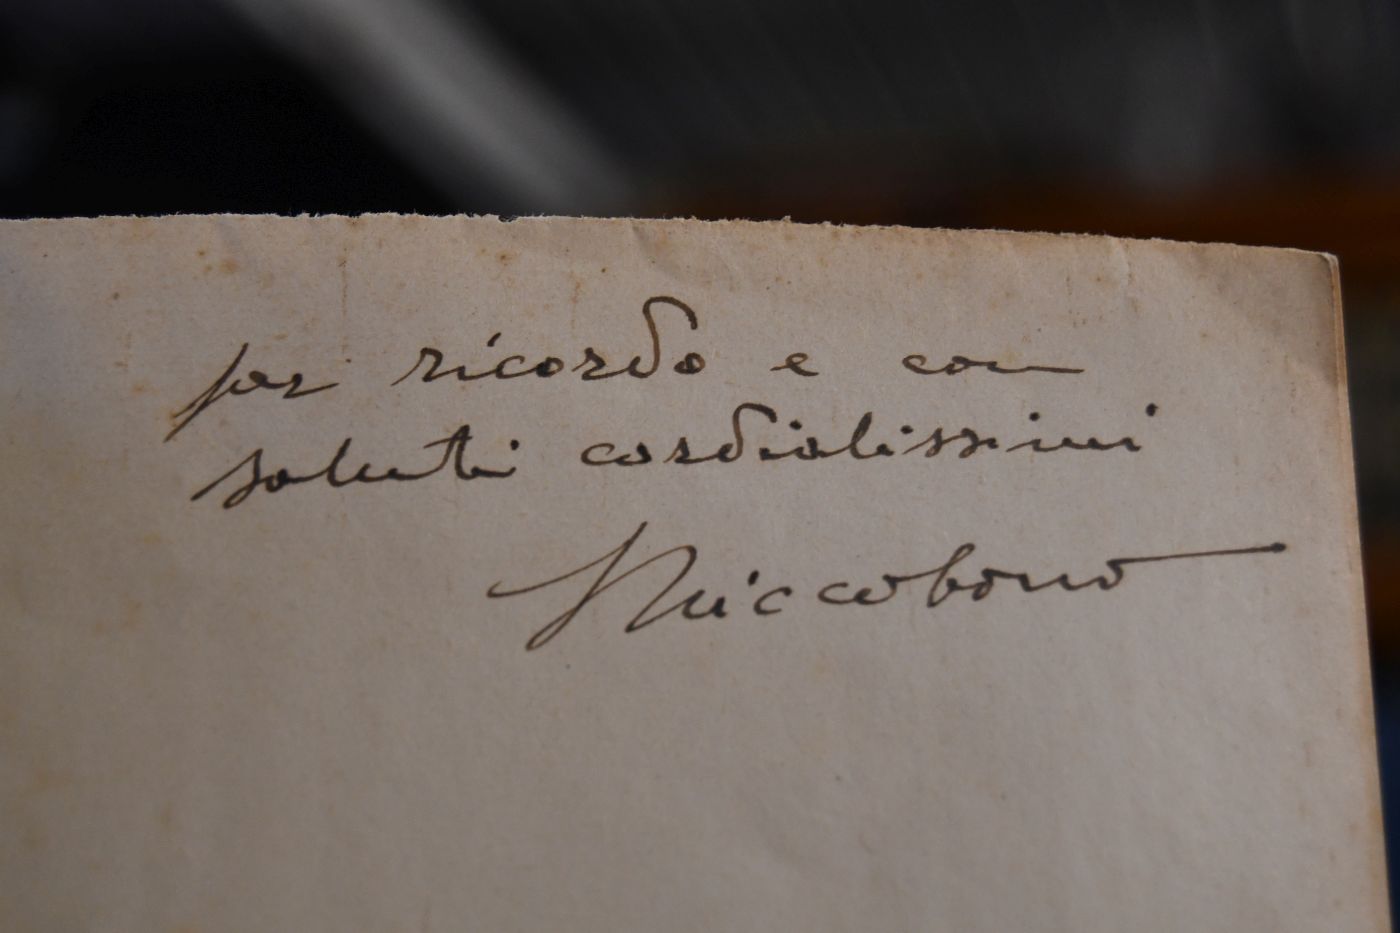 per ricordo e con
saluti cordialissimi
Riccobono